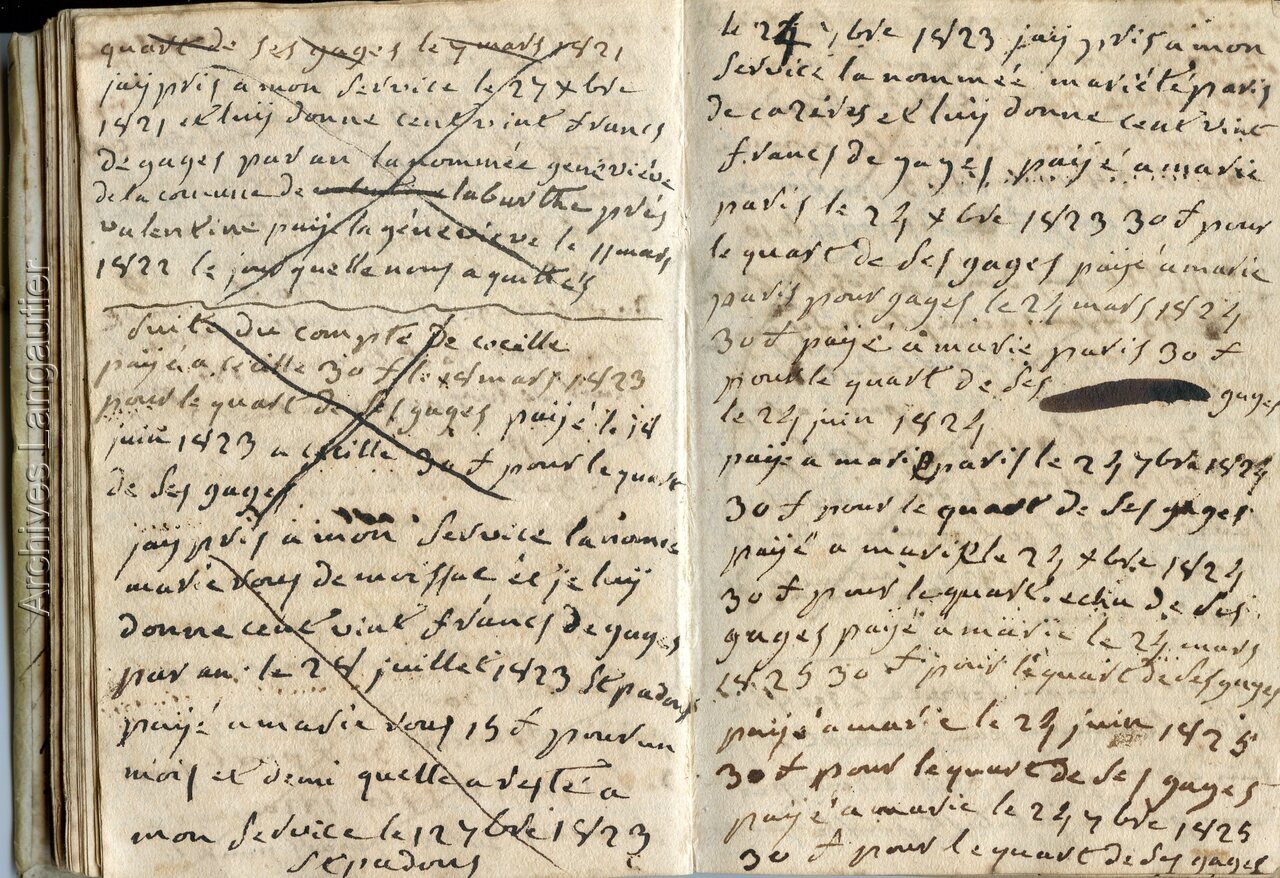 quart de ses gages le 7 mars 1821
jaÿ pris a mon service le 27 xbre
1821 et luÿ donne cent vint francs
de gages par an la nommée geneviève
de la commune de labarthe près
valentine païjé la géneviève le 11 mars
1822 le jour quelle nous a quittés
suite du compte de cecille
païjé a cecille 30 f le 18 mars 1823
pour le quart de ses gages païjé le 18
juin 1823 a cecille 30 f pour le quart
de ses gages
jaÿ pris a mon service la nomée
marie rous de moissac et je luÿ
donne cent vint francs de gages
par an le 28 juillet 1823 St padous
païjé a marie rous 15 f pour un
mois et demi quelle a resté a
mon service le 12 7bre 1823
St padous
le 24 7bre 1823 jaÿ pris a mon
service la nommée mariété paris
de cazères et luÿ donne cent vint
francs de gages païjé a marie
paris le 24 xbre 1823 30 f pour
le quart de ses gages païjé a marie
paris pour gages le 24 mars 1824
30 f païjé a marie paris 30 f
pour le quart de ses gages
le 24 juin 1824
païjé a marie paris le 24 7bre 1824
30 f pour le quart de ses gages
païjé a marie le 24 xbre 1824
30 f pour le quart echu de ses
gages païjé a marie le 24 mars
1825 30 f pour le quart de ses gages
païjé a marie le 24 juin 1825
30 f pour le quart de ses gages
païjé a marie le 24 7bre 1825
30 f pour le quart de ses gages
Archives Langautier